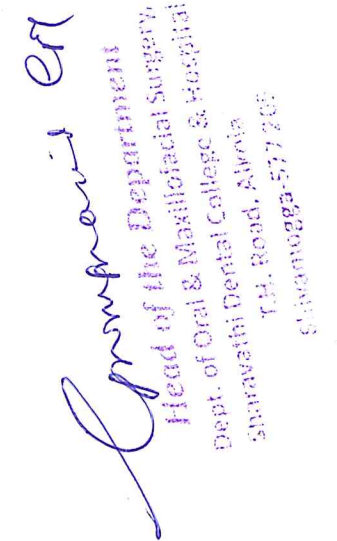 Head of the Department
Dept. of Oral & Maxillofacial Surgery,
Sharavathi Dental College & Hospital
T.H. Road, Alkola
Shivamogga-577 205